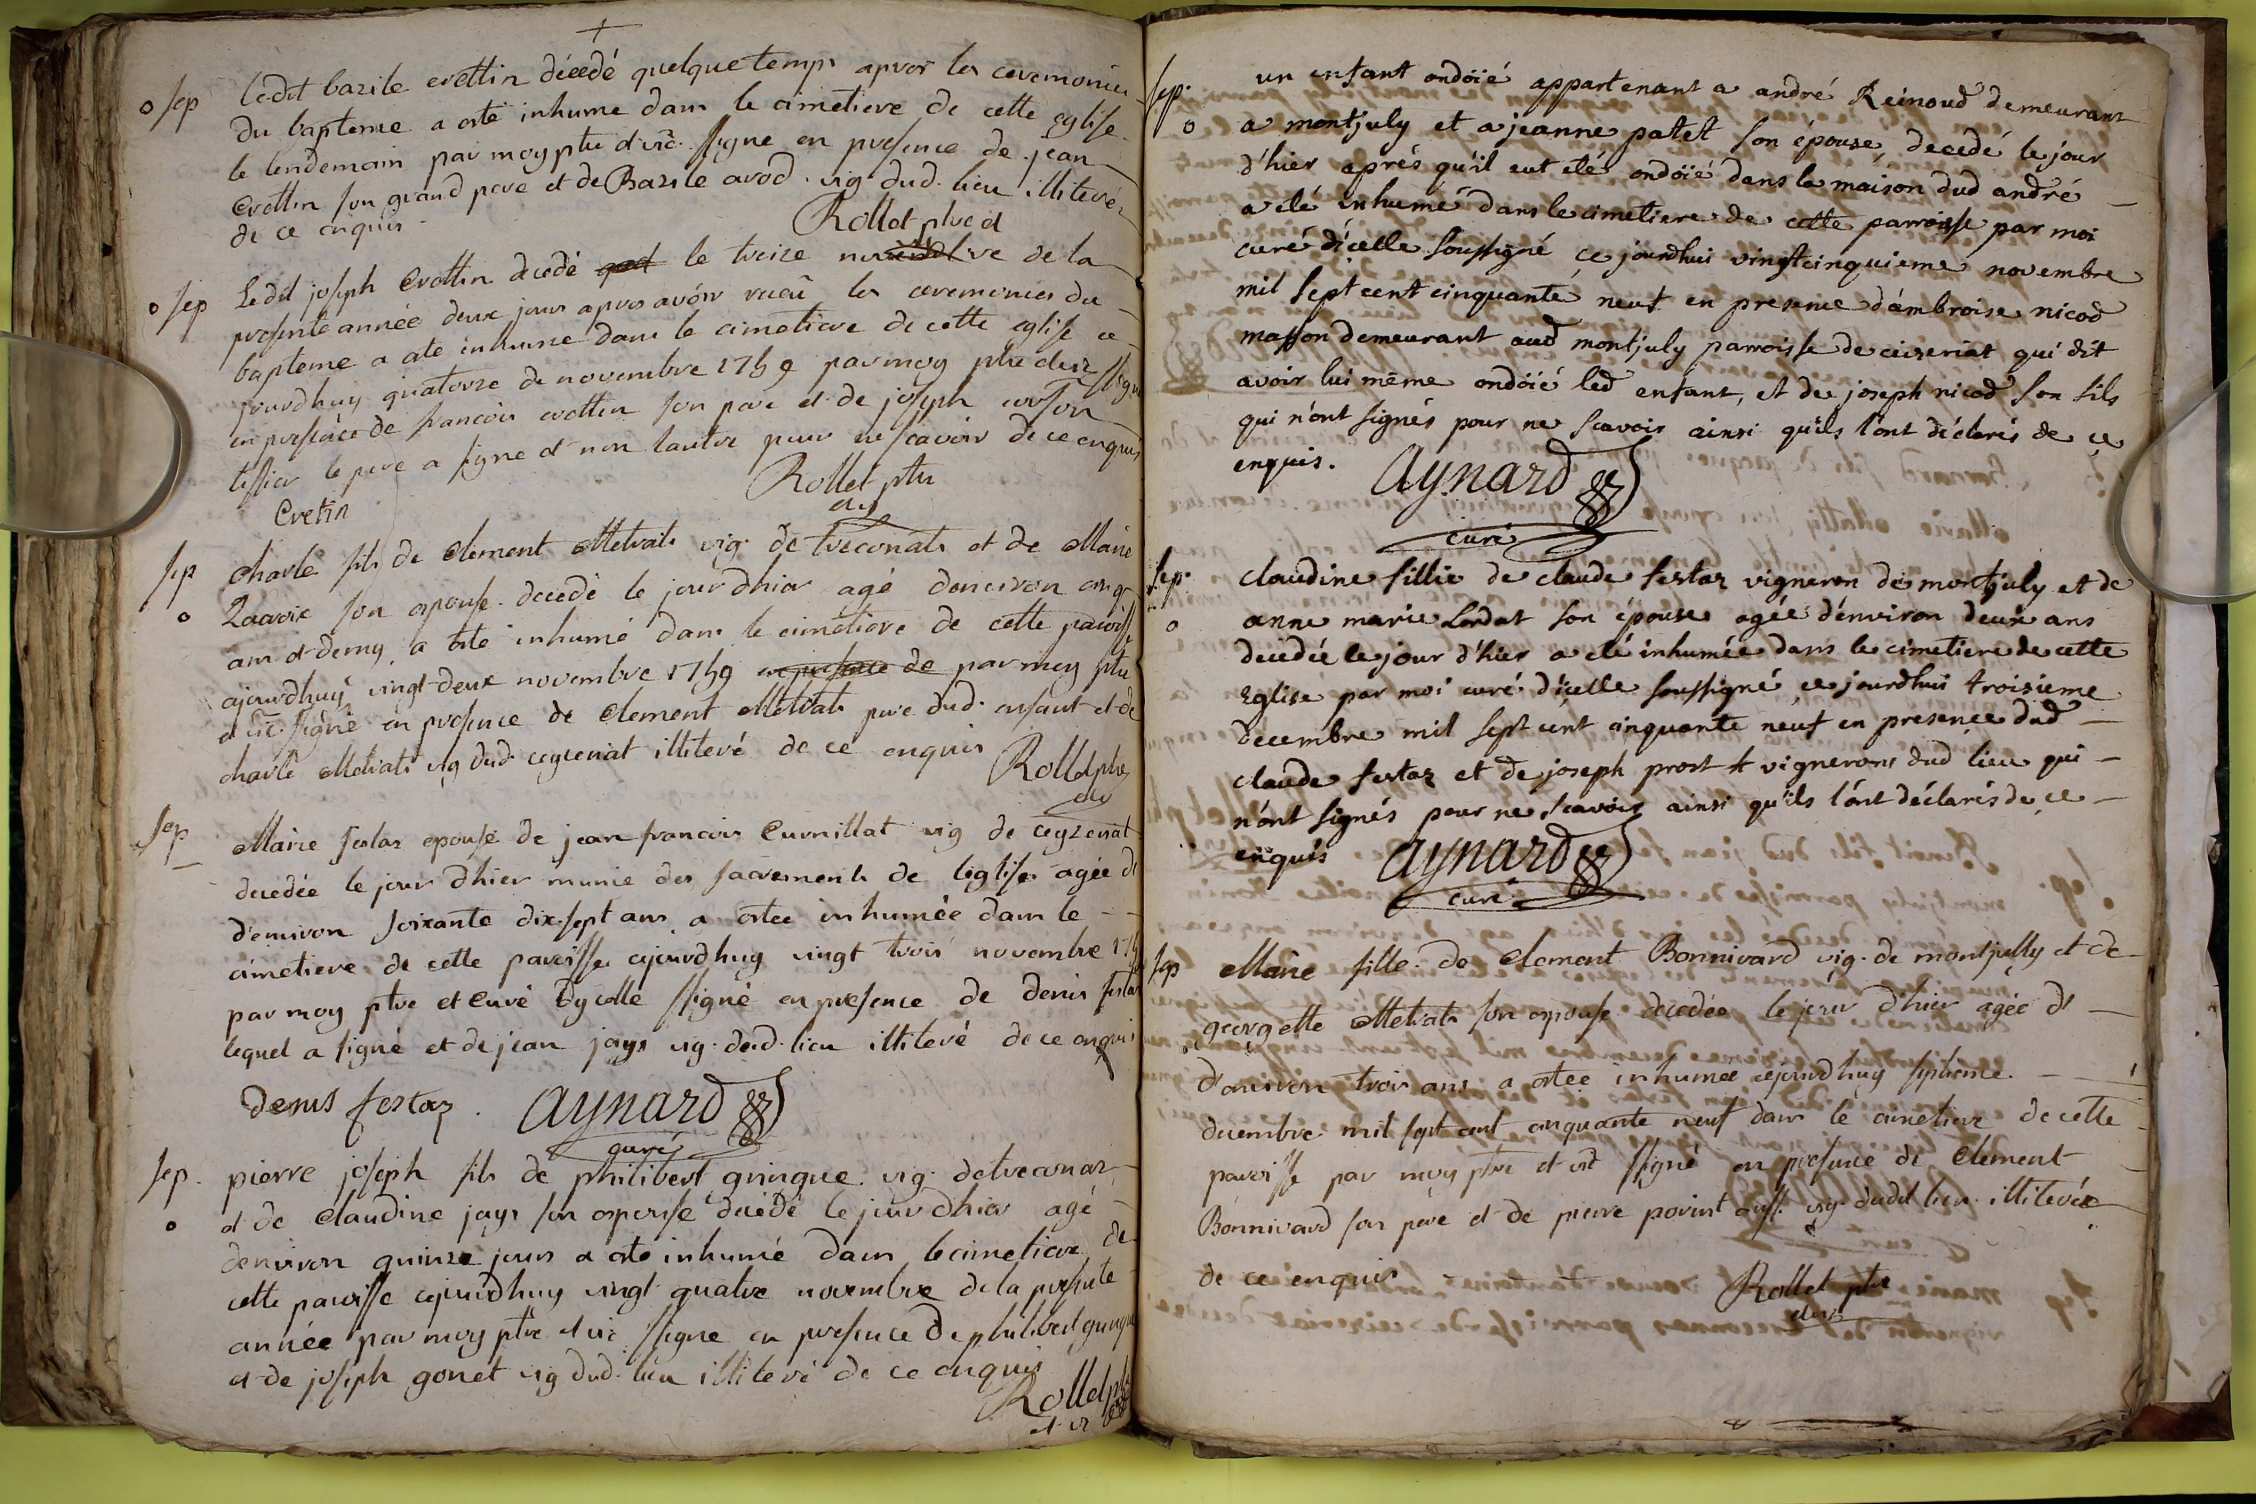 o sep ledit bazile crettin décédé quelque temps apres les ceremonies
du bapteme a esté inhumé dans le cimetiere de cette eglise
le lendemain par moy ptre et vic. ssigné en presence de jean
Crettin son grand pere et de Bazile avod vig dud. lieu illiterés
de ce enquis
Rollet ptre et
o sep Ledit joseph Crettin decedé le treize novembre de la
presente année deux jours apres avoir reçu les ceremonies du
bapteme a esté inhumé dans le cimetiere de cette eglise ce
jourdhuy quatorze de novembre 1759 par moy ptre et vic ssigné
en presence de francois crettin son pere et de joseph
tissier le pere a signé et non lautre pour ne scavoir de ce enquis
Rollet ptre
Cretin
sep charle fils de clement Metrat vig. de treconats et de Marie
o son epouse decedé le jour dhier agé denviron cinq
ans et demy a esté inhumé dans le cimetiere de cette paroisse
ajourdhuy vingt deux novembre 1759 en presence de par moy ptre
et vic. ssigné en presence de Clement Metrat pere dud. enfant et de
charle Metrat vig dud ceyzeriat illiteré de ce enquis
Rollet ptre
sep Marie festaz epouse de jean francois Curnillat vig de ceyzeriat
decedée le jour dhier munie des sacrements de leglise agée d
denviron soixante dix-sept ans a estée inhumée dans le
cimetiere de cette paroisse ajourdhuy vingt trois novembre 1759
par moy ptre et Curé dycelle ssigné en presence de denis festaz
lequel a signé et de jean jays vig. dud. lieu illiteré de ce enquis
denis festaz. aynard
curé
sep. pierre joseph fils de philibert guingue vig. de treconaz
o et de Claudine jays son epouse decedé le jour dhier agé
denviron quinze jours a esté inhumé dans le cimetiere de
cette paroisse ajourdhuy vingt quatre novembre de la presente
année par moy ptre et vic ssigné en presence de philibert guingue
et de joseph gonet vig dud. lieu illiteré de ce enquis
Rollet ptre
et vic
sep. un enfant ondoïé appartenant a andré Reinoud demeurant
o a montjuly et a jeanne patet son épouse, decedé le jour
d'hier aprés qu'il eut eté ondoïé dans la maison dud andré
a eté inhumé dans le cimetiere de cette parroisse par moi
curé d'icelle soussigné ce jourdhui vingtcinquieme novembre
mil sept cent cinquante neuf en presence d'ambroise nicod
masson demeurant aud montjuly parroisse de ceizeriat qui dit
avoir lui même ondoïé led enfant, et de joseph nicod son fils
qui n'ont signés pour ne scavoir ainsi qu'ils l'ont déclarés de ce
enquis. aynard
curé
sep. claudine fillie de claude festaz vigneron de montjuly et de
o anne marie Lordat son épouse agée d'environ deux ans
decedée le jour d'hier a eté inhumée dans le cimetiere de cette
Eglise par moi curé d'icelle soussigné ce jourdhui troisieme
decembre mil sept cent cinquante neuf en presence dud
claude festaz et de joseph prost vignerons dud lieu qui
n'ont signés pour ne scavoir ainsi qu'ils l'ont déclarés de ce
enquis aynard
curé
sep Marie fille de Clement Bonnivard vig. de montjully et de
georgette Metrat son epouse decedée le jour dhier agée d
d'environ trois ans a estée inhumée ajourdhuy septieme
decembre mil sept cent cinquante neuf dans le cimetiere de cette
paroisse par moy ptre et vic ssigné en presence de Clement
Bonnivard son pere et de pierre aussi vig. dudit lieu illiterés
de ce enquis
Rollet ptre
et vic